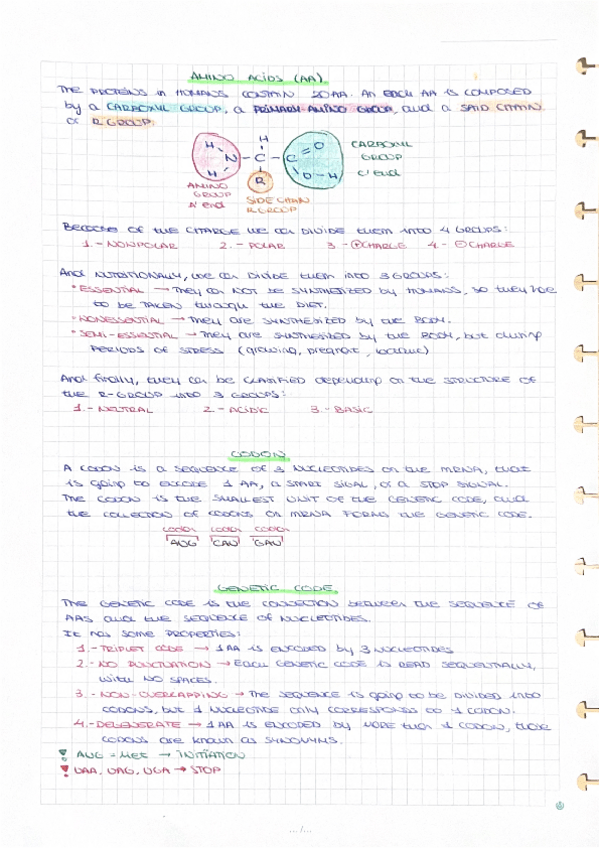 AMINO ACIDS (AA)
THE PROTEINS IN HUMANS CONTAIN 20 AA. AN EACH AA IS COMPOSED
by a CARBOXYL GROUP, a PRIMARY-AMINO GROUP, and a SAID CHAIN
or R GROUP.
H H O
N - C - C CARBOXYL
H R O - H GROUP
C' end
AMINO
GROUP
N' end
SIDE CHAIN
R GROUP
BECAUSE OF THE CHARGE WE CAN DIVIDE THEM INTO 4 GROUPS:
1.- NONPOLAR 2.- POLAR 3.- ⊕ CHARGE 4.- ⊖ CHARGE
And NUTRITIONALLY, WE CAN DIVIDE THEM INTO 3 GROUPS:
* ESSENTIAL → They CAN NOT BE SYNTHETIZED by HUMANS, SO they
TO BE TAKEN through the DIET.
* NONESSENTIAL → They ARE SYNTHESIZED by THE BODY.
* SEMI-ESSENTIAL → They ARE SYNTHESIZED by THE BODY, but during
PERIODS OF STRESS (growing, pregnant,
And finally, they can be CLASSIFIED depending on the STRUCTURE OF
the R-GROUP INTO 3 GROUPS:
1.- NEUTRAL 2.- ACIDIC 3.- BASIC
CODON
A CODON IS A SEQUENCE OF 3 NUCLEOTIDES ON the MRNA, that
is going to ENCODE 1 AA, A START SIGNAL, or A STOP SIGNAL.
THE CODON IS THE SMALLEST UNIT OF THE GENETIC CODE, and
the COLLECTION OF CODONS ON MRNA FORMS the GENETIC CODE.
CODON CODON CODON
AUG CAU GAU
GENETIC CODE
THE GENETIC CODE IS THE CONNECTION between THE SEQUENCE OF
AAS and the SEQUENCE OF NUCLEOTIDES.
IT has SOME PROPERTIES:
1.- TRIPLET CODE → 1 AA IS ENCODED by 3 NUCLEOTIDES
2.- NO PUNCTUATION → EACH GENETIC CODE IS READ SEQUENTIALLY,
with NO SPACES.
3.- NON-OVERLAPPING → The SEQUENCE IS going to be DIVIDED INTO
CODONS, but 1 NUCLEOTIDE only CORRESPONDS to 1 CODON.
4.- DEGENERATE → 1 AA IS ENCODED by MORE than 1 CODON, those
CODONS ARE known as SYNONYMS.
! AUG = MET → INITIATION
! UAA, UAG, UGA → STOP
.../...